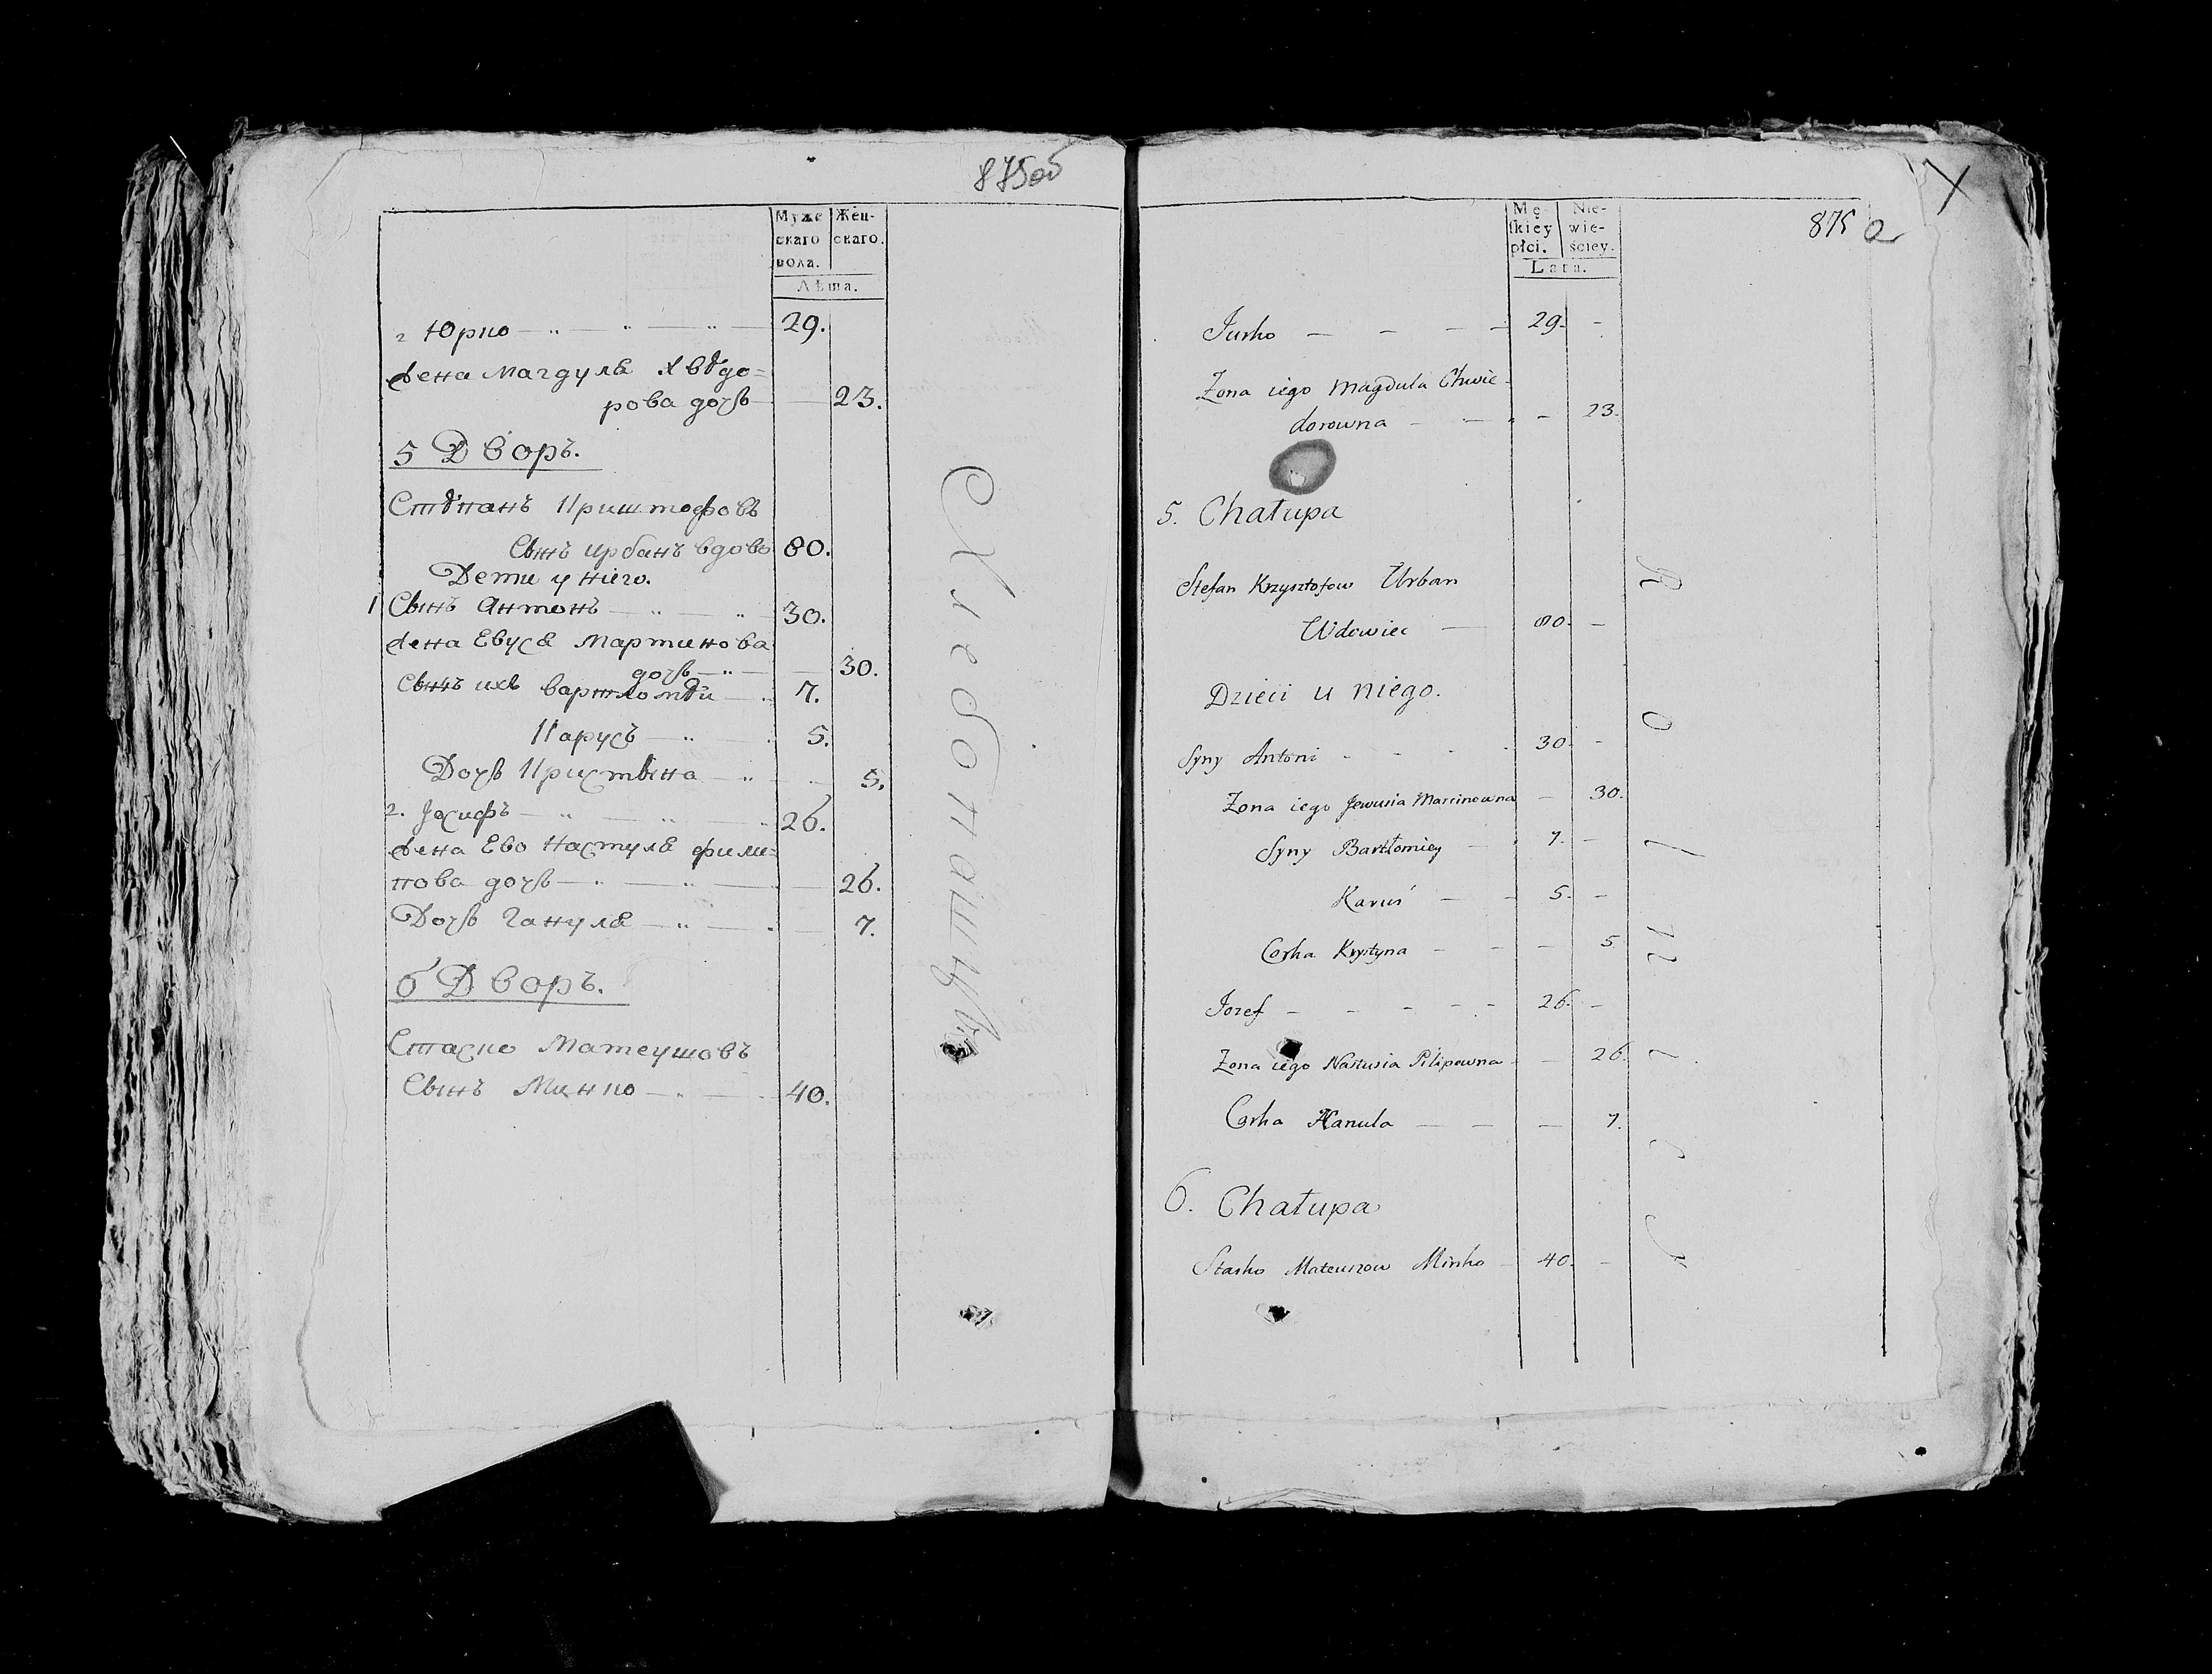 875об
Муже Жен-
скаго скаго.
пола.
Лѣта.
2 Юрко 29.
Жена Магдуля Хвѣдо=
рова дочь 23.
5 Дворъ.
Стѣпанъ Криштофовъ
Сынъ Урбанъ вдовъ 80.
Дети у ніего.
1 Сынъ Антонъ 30.
Жена Евуся Мартинова
дочь 30.
Сынъ ихъ Вартломѣй 7.
Карусъ 5.
Дочь Кристына 5.
2. Јосифъ 26.
Жена Ево Настуля Фили=
пова дочь 26.
Дочь Гануля 7.
6 Дворъ.
Стаско Матеушовъ
Сынъ Минко 40.
Хлебопашцы
875 а
Mę- Nie-
ſkiey wie-
płci. ściey.
Lata.
Jurko 29. -
Zona iego Magdula Chwie-
dorowna - 23.
5. Chałupa
Stefan Krzysztofow Urban
Wdowiec 80. -
Dzieci u niego.
Syny Antoni 30. -
Zona iego Jewusia Marcinowna - 30.
Syny Bartłomiey 7. -
Karuś 5. -
Corka Krystyna - 5
Jozef 26. -
Zona iego Nastusia Pilipowna - 26.
Corka Hanula - 7.
6. Chałupa
Stasko Mateuszow Minko 40. -
Rolnicy